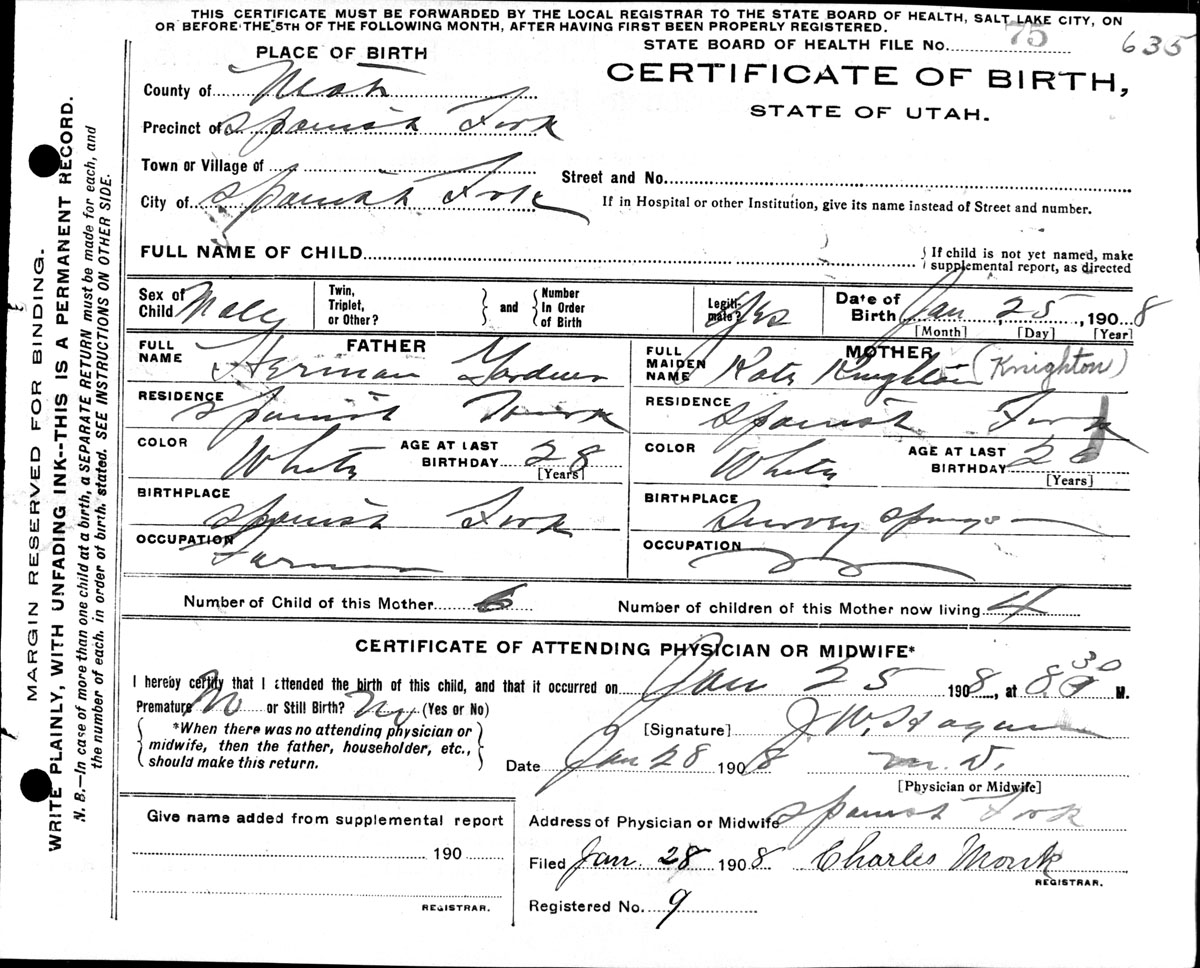 THIS CERTIFICATE MUST BE FORWARDED BY THE LOCAL REGISTRAR TO THE STATE BOARD OF HEALTH, SALT LAKE CITY, ON
OR BEFORE THE 5TH OF THE FOLLOWING MONTH, AFTER HAVING FIRST BEEN PROPERLY REGISTERED.
STATE BOARD OF HEALTH FILE No. 75 635
PLACE OF BIRTH
CERTIFICATE OF BIRTH,
STATE OF UTAH.
County of Utah
Precinct of Spanish Fork
Town or Village of
City of Spanish Fork
Street and No.
If in Hospital or other Institution, give its name instead of Street and number.
FULL NAME OF CHILD
If child is not yet named, make
supplemental report, as directed
Sex of Child Male
Twin, Triplet, or Other? and Number In Order of Birth
Legitimate? Yes
Date of Birth Jan 25, 1908
[Month] [Day] [Year]
FATHER
FULL NAME Herman Gardner
RESIDENCE Spanish Fork
COLOR White AGE AT LAST BIRTHDAY 28
[Years]
BIRTHPLACE Spanish Fork
OCCUPATION Farmer
MOTHER
FULL MAIDEN NAME Kate Knighton (Knighton)
RESIDENCE Spanish Fork
COLOR White AGE AT LAST BIRTHDAY 26
[Years]
BIRTHPLACE
OCCUPATION
Number of Child of this Mother
Number of children of this Mother now living 4
CERTIFICATE OF ATTENDING PHYSICIAN OR MIDWIFE*
I hereby certify that I attended the birth of this child, and that it occurred on Jan 25 1908, at 8 30 M.
Premature No or Still Birth? No (Yes or No)
*When there was no attending physician or
midwife, then the father, householder, etc.,
should make this return.
[Signature] J. W. Hagan
Date Jan 28 1908 M. D.
[Physician or Midwife]
Address of Physician or Midwife Spanish Fork
Filed Jan. 28 1908 Charles Monk
REGISTRAR.
Registered No. 9
Give name added from supplemental report
190
REGISTRAR.
MARGIN RESERVED FOR BINDING.
WRITE PLAINLY, WITH UNFADING INK--THIS IS A PERMANENT RECORD.
N. B.—In case of more than one child at a birth, a SEPARATE RETURN must be made for each, and
the number of each, in order of birth, stated. SEE INSTRUCTIONS ON OTHER SIDE.